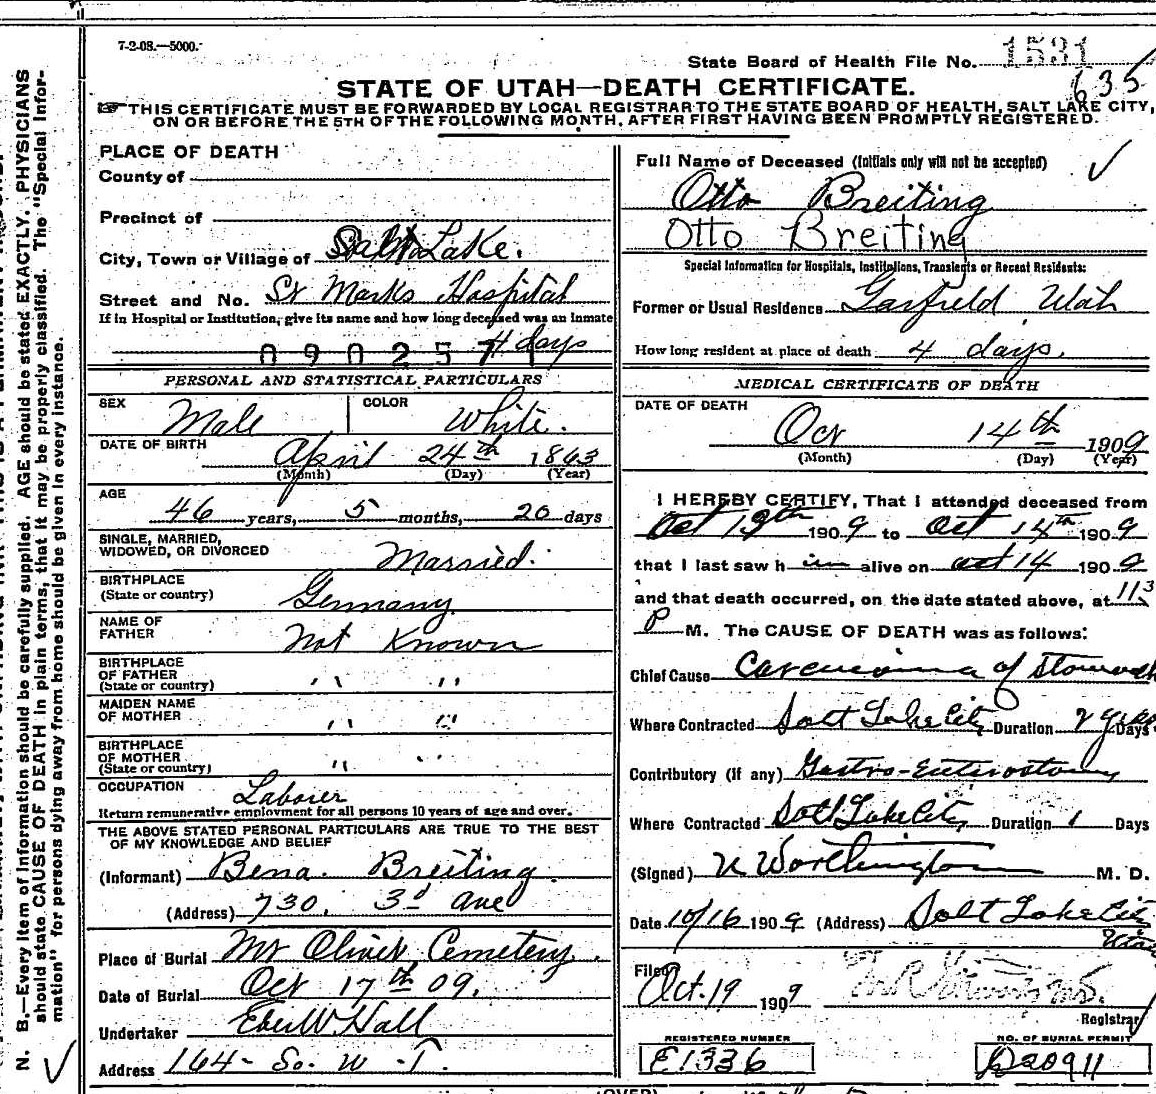 7-2-08.—5000.
State Board of Health File No. 1531
635
STATE OF UTAH—DEATH CERTIFICATE.
THIS CERTIFICATE MUST BE FORWARDED BY LOCAL REGISTRAR TO THE STATE BOARD OF HEALTH, SALT LAKE CITY,
ON OR BEFORE THE 5TH OF THE FOLLOWING MONTH, AFTER FIRST HAVING BEEN PROMPTLY REGISTERED.
PLACE OF DEATH
County of
Precinct of
City, Town or Village of Salt Lake.
Street and No. St Marks Hospital
If in Hospital or Institution, give its name and how long deceased was an inmate
4 days
090257
PERSONAL AND STATISTICAL PARTICULARS
SEX Male COLOR White.
DATE OF BIRTH April 24th 1863
(Month) (Day) (Year)
AGE
46 years, 5 months, 20 days
SINGLE, MARRIED,
WIDOWED, OR DIVORCED Married.
BIRTHPLACE
(State or country) Germany
NAME OF
FATHER Not Known
BIRTHPLACE
OF FATHER
(State or country) " "
MAIDEN NAME
OF MOTHER " "
BIRTHPLACE
OF MOTHER
(State or country) " "
OCCUPATION Laborer
Return remunerative employment for all persons 10 years of age and over.
THE ABOVE STATED PERSONAL PARTICULARS ARE TRUE TO THE BEST
OF MY KNOWLEDGE AND BELIEF
(Informant) Bena Breiting.
(Address) 730. 3d ave
Place of Burial Mt Olivet Cemetery.
Date of Burial Oct 17th 09.
Undertaker Eber W. Hall
Address 164 - So. W. T.
Full Name of Deceased (Initials only will not be accepted)
Otto Breiting
Otto Breiting
Special Information for Hospitals, Institutions, Transients or Recent Residents:
Former or Usual Residence Garfield Utah
How long resident at place of death 4 days.
MEDICAL CERTIFICATE OF DEATH
DATE OF DEATH
Oct 14th 1909
(Month) (Day) (Year)
I HEREBY CERTIFY, That I attended deceased from
Oct 1909 to Oct 14th 1909
that I last saw him alive on oct 14 1909
and that death occurred, on the date stated above, at 113
P M. The CAUSE OF DEATH was as follows:
Chief Cause Carcinoma of Stomach
Where Contracted Salt Lake City Duration 2 years Days
Contributory (If any) Gastro-Enterostomy
Where Contracted Salt Lake City Duration 1 Days
(Signed) Worthington M. D.
Date 10/16 1909 (Address) Salt Lake City
Utah
Filed
Oct. 19 1909
Registrar
REGISTERED NUMBER
E1336
NO. OF BURIAL PERMIT
D20911
(OVER)
N. B.—Every item of information should be carefully supplied. AGE should be stated EXACTLY. PHYSICIANS
should state CAUSE OF DEATH in plain terms, that it may be properly classified. The "Special Infor-
mation" for persons dying away from home should be given in every instance.